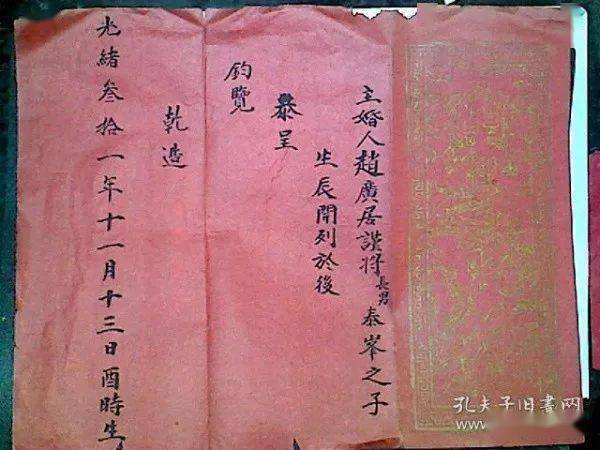 主婚人趙廣居謹將長男泰峯之子
生辰開列於後
恭呈
鈞覽
乾造
光緒叁拾一年十一月十三日酉時生
孔夫子旧書网